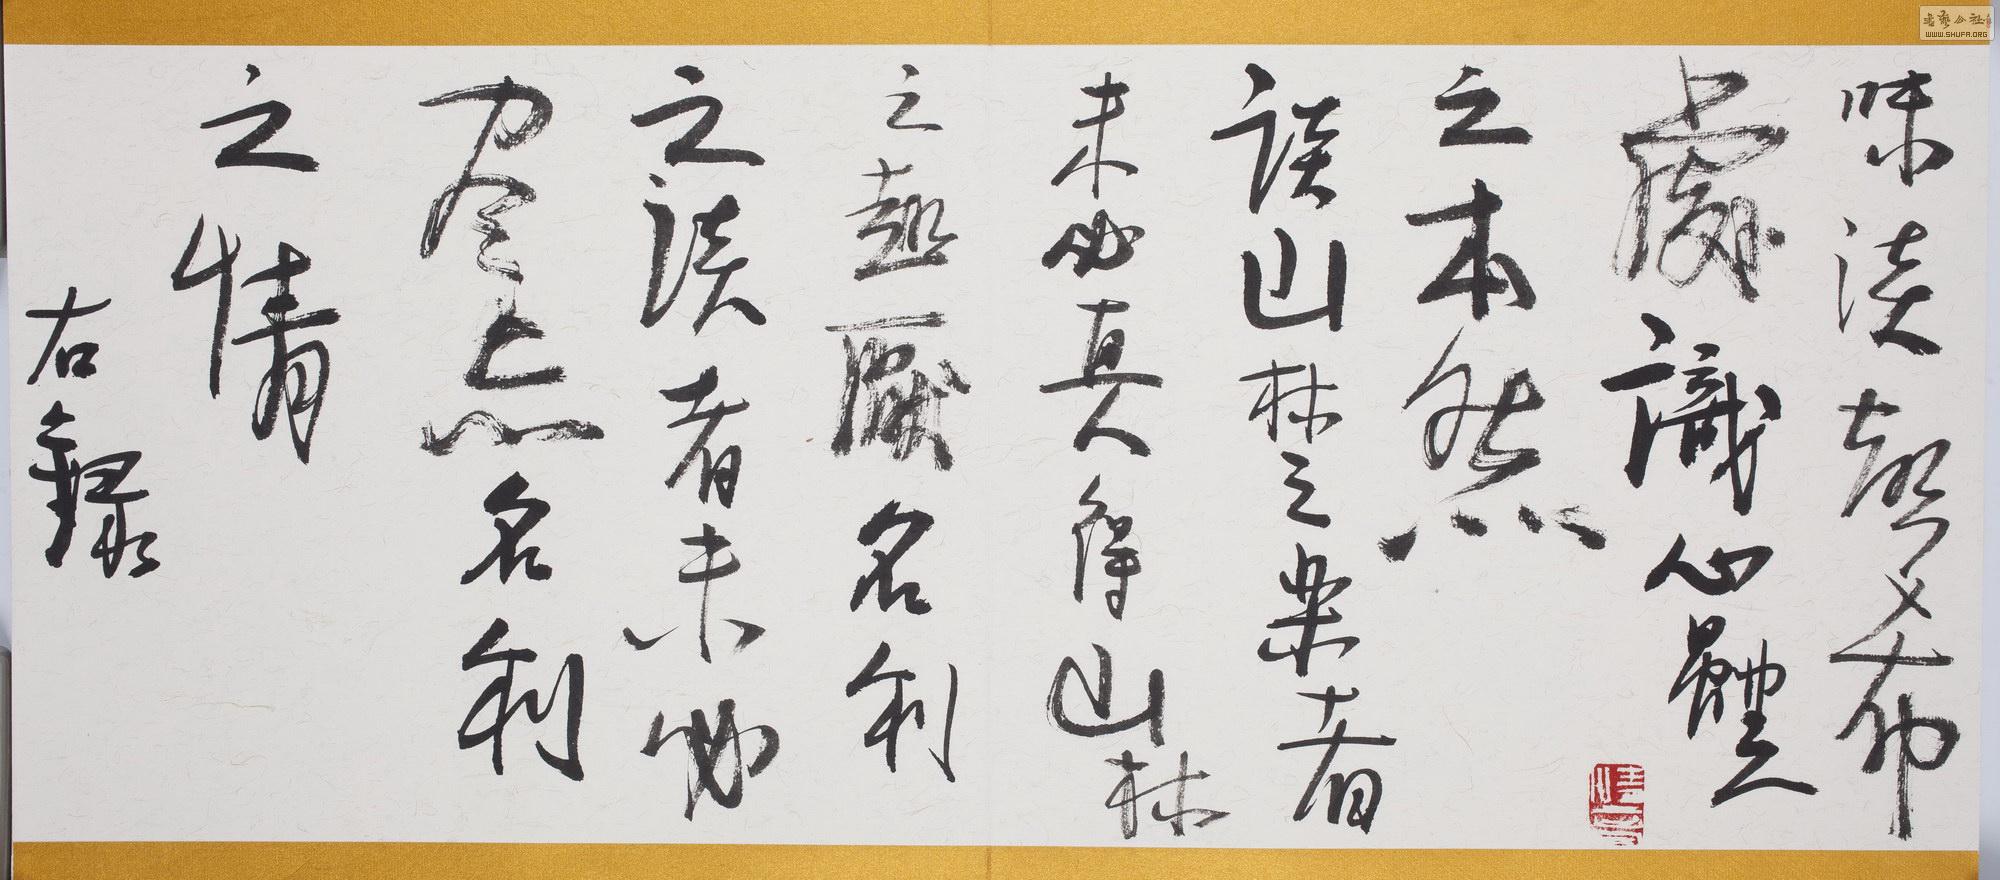 味淡聲希
處識心體
之本然
談山林之楽者
未必真得山林
之趣厭名利
之談者未必
尽忘名利
之情
右錄
書藝公社
WWW.SHUFA.ORG